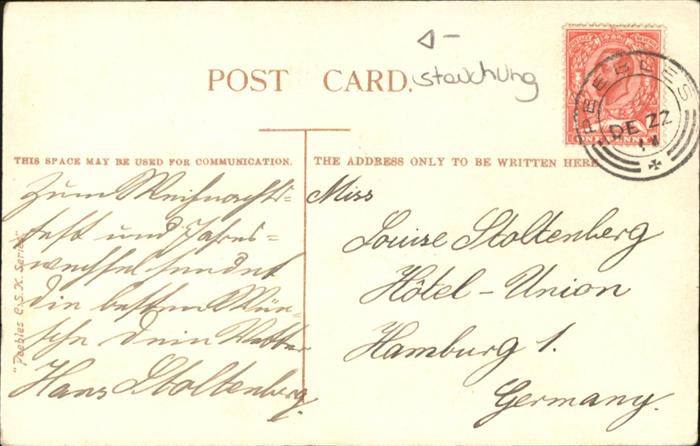 POST CARD.
Stauchung
PEEBLES
DE 22
11
ONE PENNY
THIS SPACE MAY BE USED FOR COMMUNICATION.
THE ADDRESS ONLY TO BE WRITTEN HERE
Zum Weihnachts-
fest und Jahres-
wechsel sendet
die besten Wün-
sche Dein Vetter
Hans Stoltenberg.
Miss
Louise Stoltenberg
Hôtel - Union
Hamburg 1.
Germany.
"Peebles C.S.K. Series"